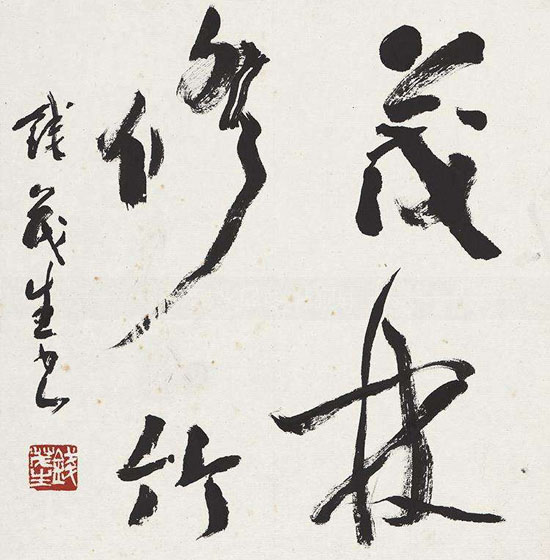 茂林
修竹
钱茂生书
錢茂生